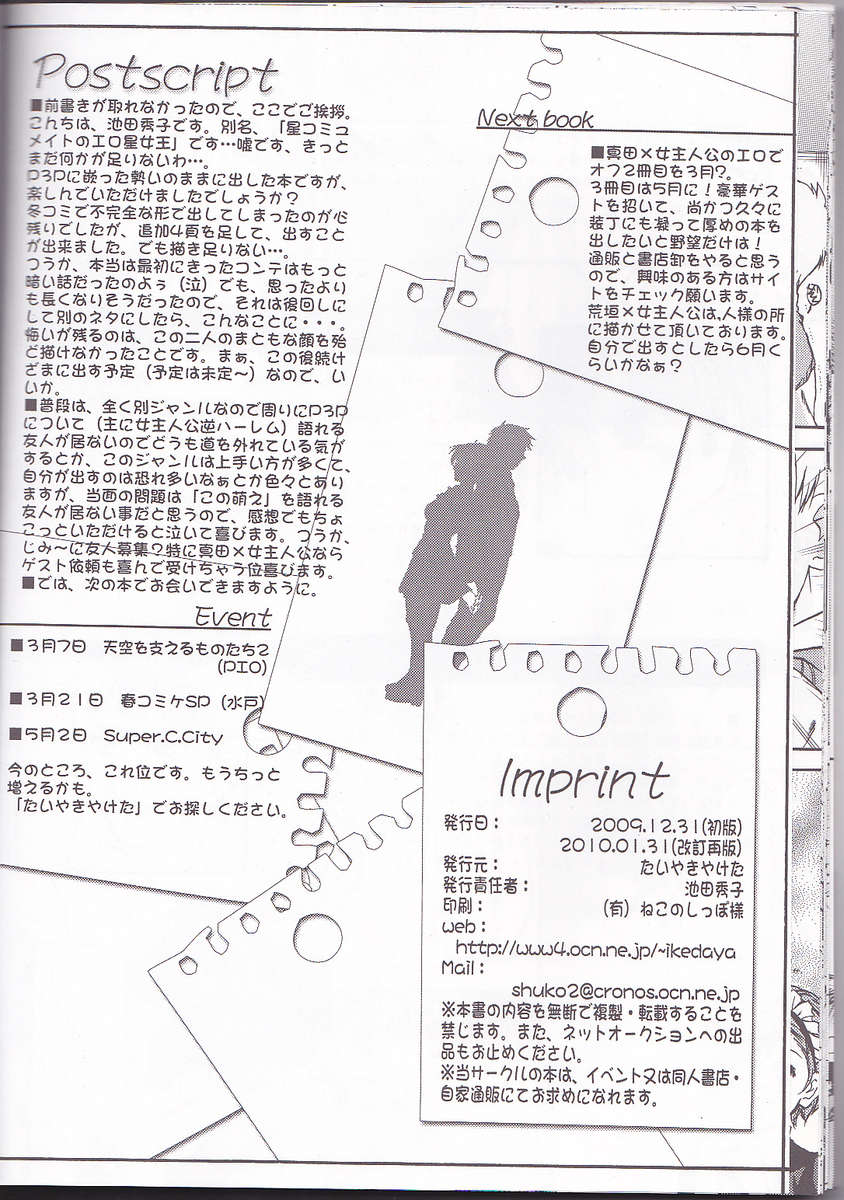 Postscript
■前書きが取れなかったので、ここでご挨拶。
こんちは、池田秀子です。別名、「星コミュ
メイトのエロ星女王」です…嘘です、きっと
まだ何かが足りないわ…。
P3Pに嵌った勢いのままに出した本ですが、
楽しんでいただけましたでしょうか？
冬コミで不完全な形で出してしまったのが心
残りでしたが、追加4頁を足して、出すこと
が出来ました。でも描き足りない…。
つうか、本当は最初にきったコンテはもっと
暗い話だったのよぅ（泣）でも、思ったより
も長くなりそうだったので、それは後回しに
して別のネタにしたら、こんなことに・・・。
悔いが残るのは、この二人のまともな顔を殆
ど描けなかったことです。まぁ、この後続け
ざまに出す予定（予定は未定～）なので、い
いか。
■普段は、全く別ジャンルなので周りにP3P
について（主に女主人公逆ハーレム）語れる
友人が居ないのでどうも道を外れている気が
するとか、このジャンルは上手い方が多くて、
自分が出すのは恐れ多いなぁとか色々とあり
ますが、当面の問題は「この萌え」を語れる
友人が居ない事だと思うので、感想でもちょ
こっといただけると泣いて喜びます。つうか、
じみ～に友人募集？特に真田×女主人公なら
ゲスト依頼も喜んで受けちゃう位喜びます。
■では、次の本でお会いできますように。
Event
■3月7日　天空を支えるものたち2
(PIO)
■3月21日　春コミケSP（水戸）
■5月2日　Super.C.City
今のところ、これ位です。もうちっと
増えるかも。
「たいやきやけた」でお探しください。
Next book
■真田×女主人公のエロで
オフ2冊目を3月?。
3冊目は5月に！豪華ゲス
トを招いて、尚かつ久々に
装丁にも凝って厚めの本を
出したいと野望だけは！
通販と書店卸をやると思う
ので、興味のある方はサイ
トをチェック願います。
荒垣×女主人公は、人様の所
に描かせて頂いております。
自分で出すとしたら6月く
らいかなぁ？
Imprint
発行日：　2009.12.31(初版)
2010.01.31(改訂再版)
発行元：　たいやきやけた
発行責任者：　池田秀子
印刷：　（有）ねこのしっぽ様
web：
http://www4.ocn.ne.jp/~ikedaya
Mail：
shuko2@cronos.ocn.ne.jp
※本書の内容を無断で複製・転載することを
禁じます。また、ネットオークションへの出
品もお止めください。
※当サークルの本は、イベント又は同人書店・
自家通販にてお求めになれます。